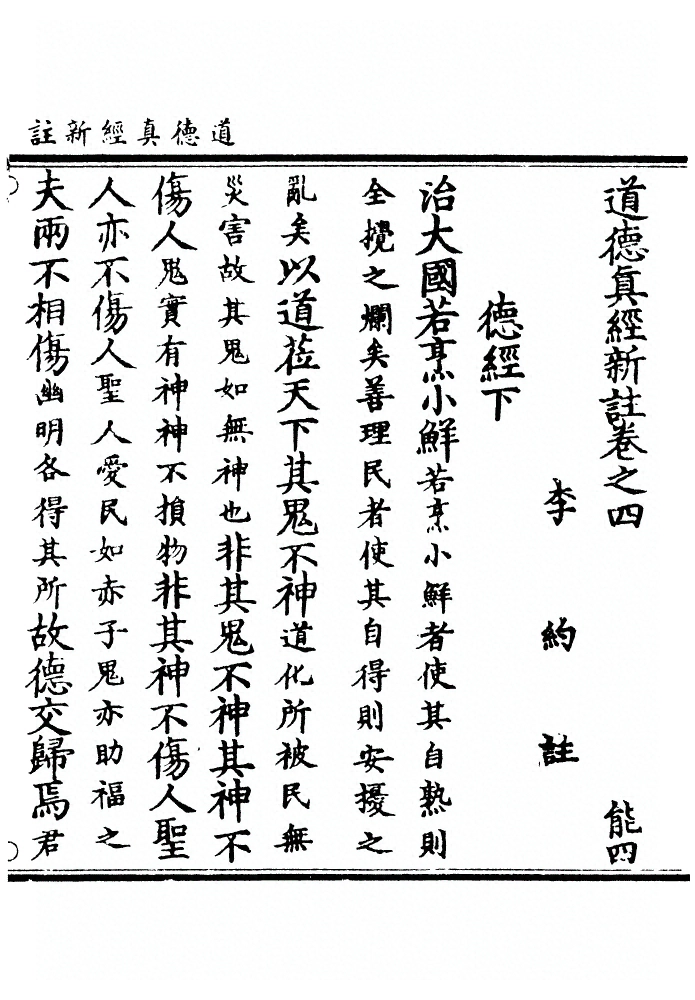 道德真經新註
道德真經新註卷之四 能四
李約註
德經下
治大國若烹小鮮若烹小鮮者使其自熟則
全攪之爛矣善理民者使其自得則安擾之
亂矣以道莅天下其鬼不神道化所被民無
災害故其鬼如無神也非其鬼不神其神不
傷人鬼實有神神不損物非其神不傷人聖
人亦不傷人聖人愛民如赤子鬼亦助福之
夫兩不相傷幽明各得其所故德交歸焉君